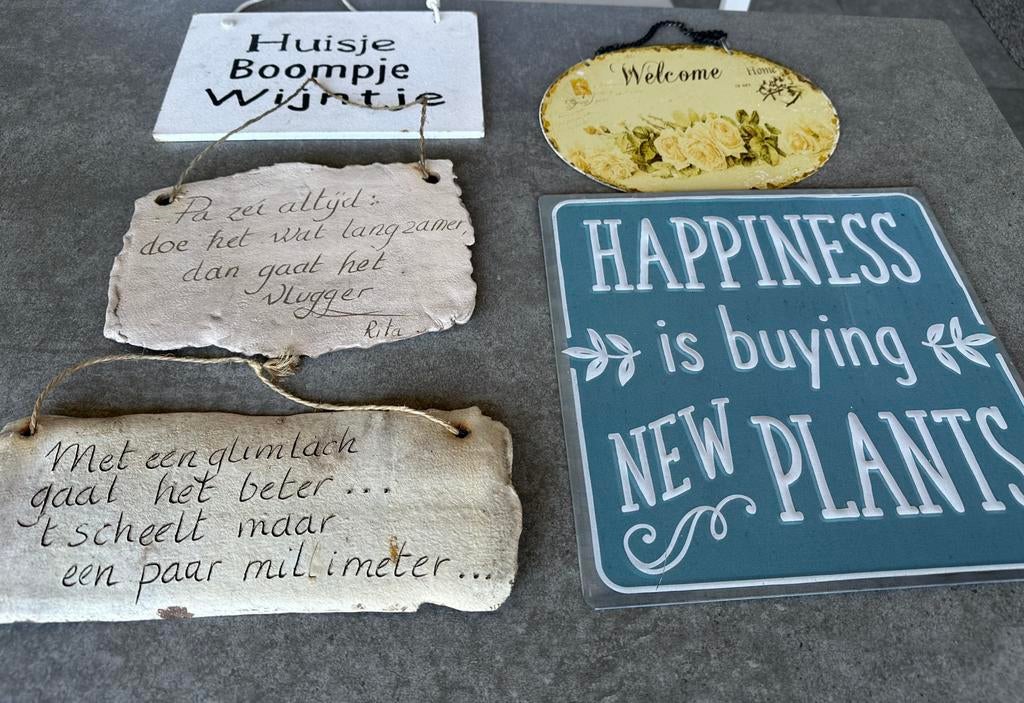 Huisje
Boompje
Wijntje
Pa zei altijd:
doe het wat langzamer,
dan gaat het
vlugger
Rita
Met een glimlach
gaat het beter...
't scheelt maar
een paar millimeter...
Welcome
Home
HAPPINESS
is buying
NEW PLANTS